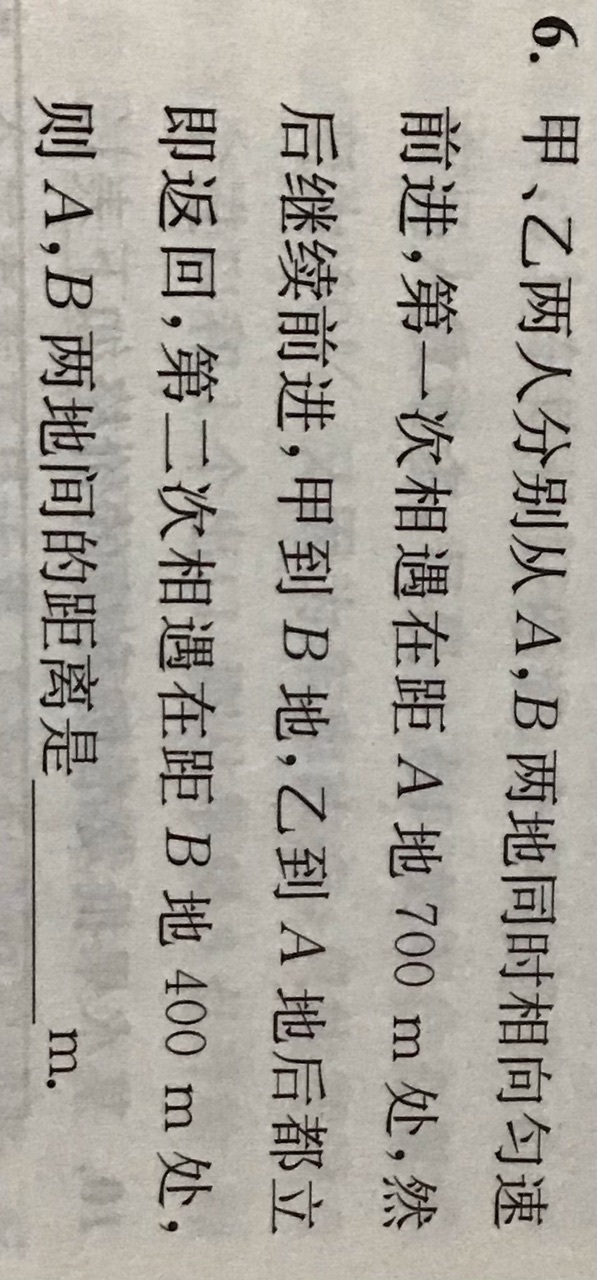 6. 甲、乙两人分别从 A,B 两地同时相向匀速
前进,第一次相遇在距 A 地 700 m 处,然
后继续前进,甲到 B 地,乙到 A 地后都立
即返回,第二次相遇在距 B 地 400 m 处,
则 A,B 两地间的距离是________ m.